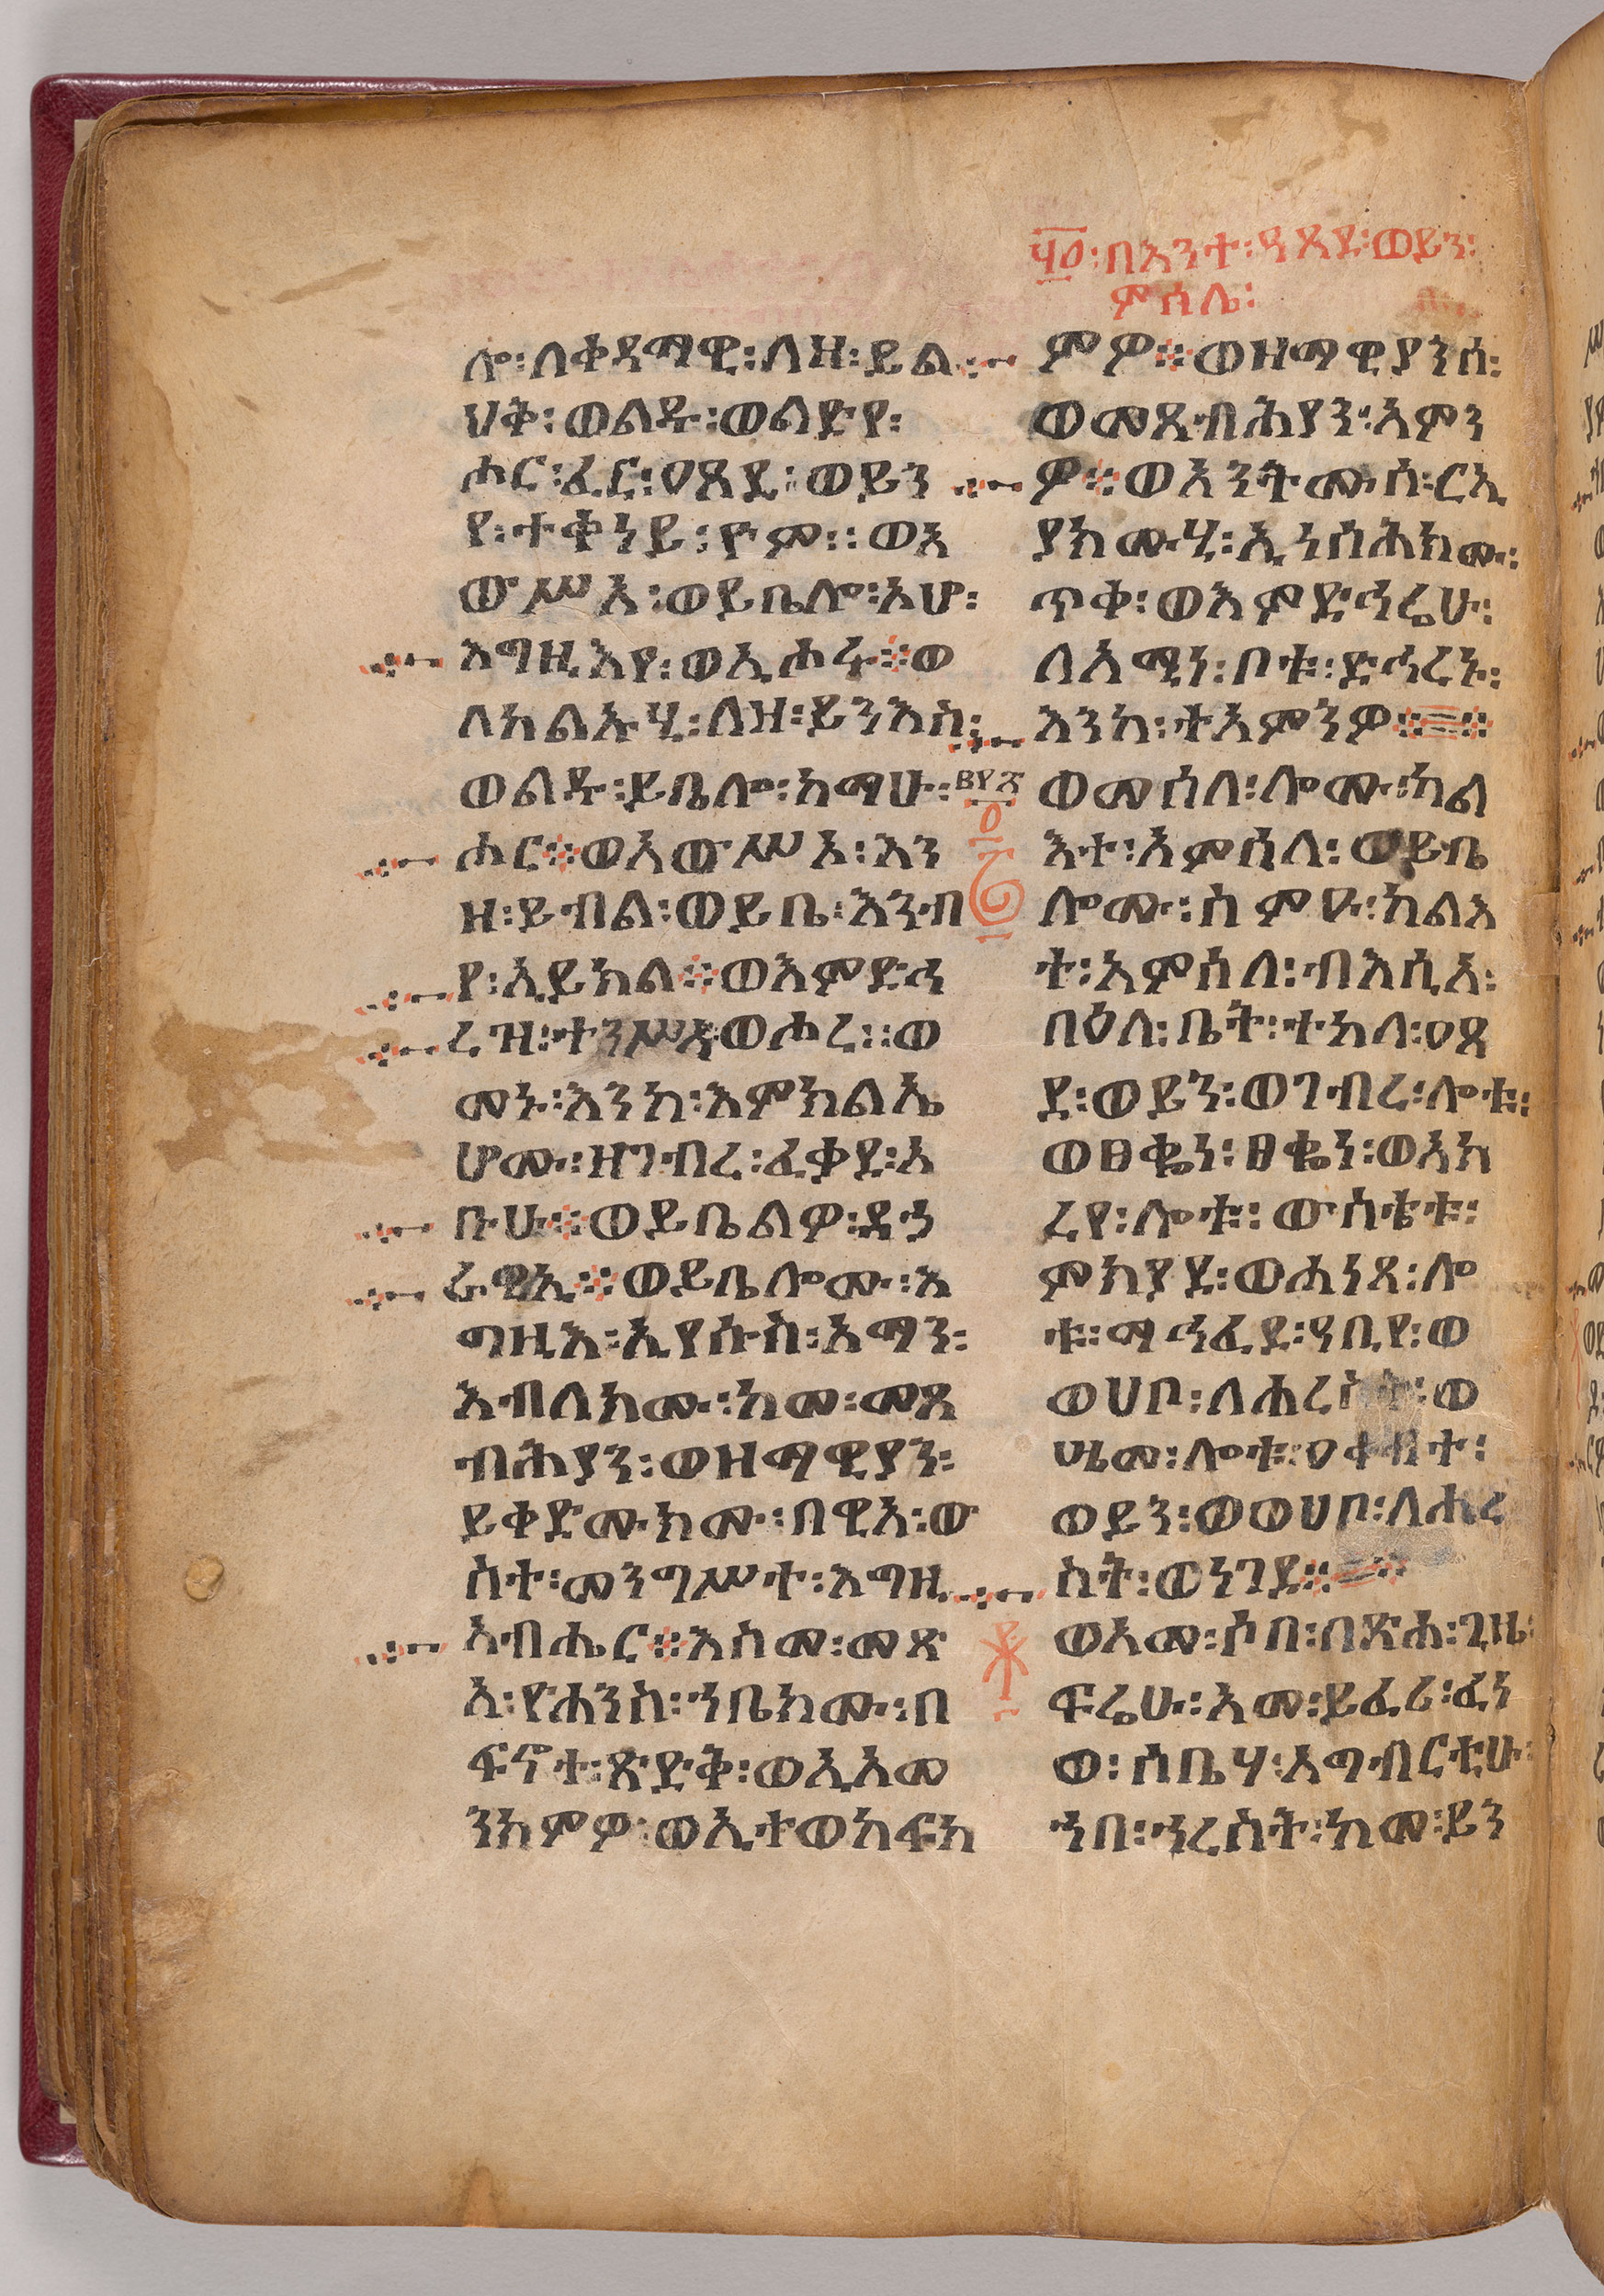 ፶፭፡በእንተ፡ዓጸደ፡ወይን፡
ምሳሌ፡
ሎ፡ለቀዳማዊ፡ለዘ፡ይል
ህቅ፡ወልዱ፡ወልድየ፡
ሖር፡ፈር፡ዐጸደ፡ወይን
የ፡ተቀነይ፡ዮም፡፡ወአ
ውሥአ፡ወይቤሎ፡ኦሆ፡
እግዚእየ፡ወኢሖረ፨ወ
ለካልኡሂ፡ለዘ፡ይንእስ፡
ወልዱ፡ይቤሎ፡ከማሁ፡
ሖር፨ወአውሥአ፡እን
ዘ፡ይብል፡ወይቤ፡እንብ
የ፡አይክል፨ወእምድኅ
ረዝ፡ተንሥአ፡ወሖረ፡፡ወ
መኑ፡እንከ፡እምክልኤ
ሆሙ፡ዘገብረ፡ፈቃደ፡አ
ቡሁ፨ወይቤልዎ፡ደኃ
ራዊ፨ወይቤሎሙ፡እ
ግዚእ፡ኢየሱስ፡አማን፡
እብለክሙ፡ከመ፡መጸ
ብሕያን፡ወዘማዊያን፡
ይቀድሙክሙ፡በዊአ፡ው
ስተ፡መንግሥተ፡እግዚ
አብሔር፨እስመ፡መጽ
አ፡ዮሐንስ፡ኀቤክሙ፡በ
ፍኖተ፡ጽድቅ፡ወኢአመ
ንክምዎ፡ወኢተወከፍክ
ምዎ፨ወዘማዊያንሰ፡
ወመጸብሕያን፡አምን
ዎ፨ወአንትሙሰ፡ርኢ
ያክሙሂ፡ኢነስሕክሙ፡
ጥቀ፡ወእምድኅሬሁ፡
ለአሚን፡ቦቱ፡ድኅረኑ፡
እንከ፡ተአምንዎ፨
ወመሰለ፡ሎሙ፡ካል
እተ፡አምሳለ፡ወይቤ
ሎሙ፡ስምዑ፡ካልእ
ተ፡አምሳለ፡ብእሲአ፡
በዕለ፡ቤት፡ተከለ፡ዐጸ
ደ፡ወይን፡ወገብረ፡ሎቱ፡
ወፀቈነ፡ፀቈነ፡ወአክ
ረየ፡ሎቱ፡ውስቴቱ፡
ምክያደ፡ወሐነጸ፡ሎ
ቱ፡ማኅፈደ፡ዓቢየ፡ወ
ወሀቦ፡ለሐረስት፡ወ
ሤመ፡ሎቱ፡ዐቀብተ፡
ወይን፡ወወሀቦ፡ለሐረ
ስት፡ወነገደ፨
ወአመ፡ሶበ፡በጽሐ፡ጊዜ፡
ፍሬሁ፡አመ፡ይፈሪ፡ፈነ
ወ፡ሰቤሃ፡አግብርቲሁ፡
ኀበ፡ኀረስት፡ከመ፡ይን